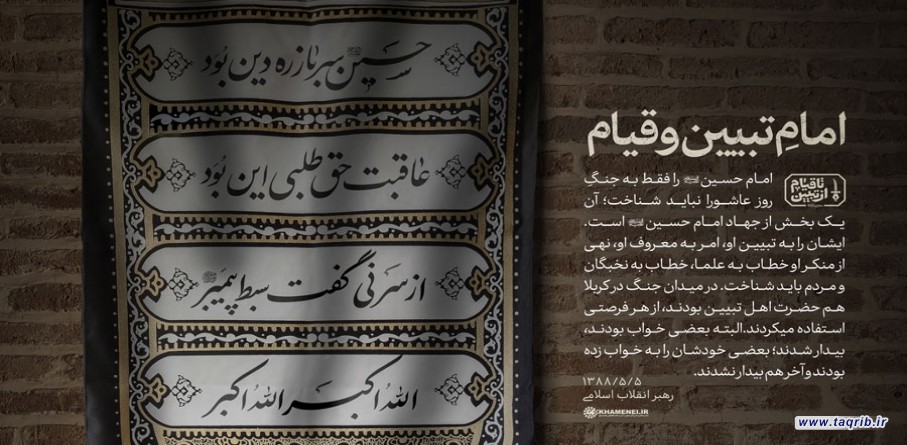 حسین سربازِ ره دین بُود
عاقبت حق طلبی این بُود
از سر نی گفت سبط پیمبر
اللهُ اکبر اللهُ اکبر
امامِ تبیین و قیام
از تبیین تا قیام
امام حسین را فقط به جنگِ
روز عاشورا نباید شناخت؛ آن
یک بخش از جهاد امام حسین است.
ایشان را به تبیین او، امر به معروف او، نهی
از منکر او خطاب به علما، خطاب به نخبگان
و مردم باید شناخت. در میدان جنگ در کربلا
هم حضرت اهل تبیین بودند، از هر فرصتی
استفاده میکردند. البته بعضی خواب بودند،
بیدار شدند؛ بعضی خودشان را به خواب زده
بودند و آخر هم بیدار نشدند.
۱۳۸۸/۵/۵
رهبر انقلاب اسلامی
KHAMENEI.IR
www.taqrib.ir